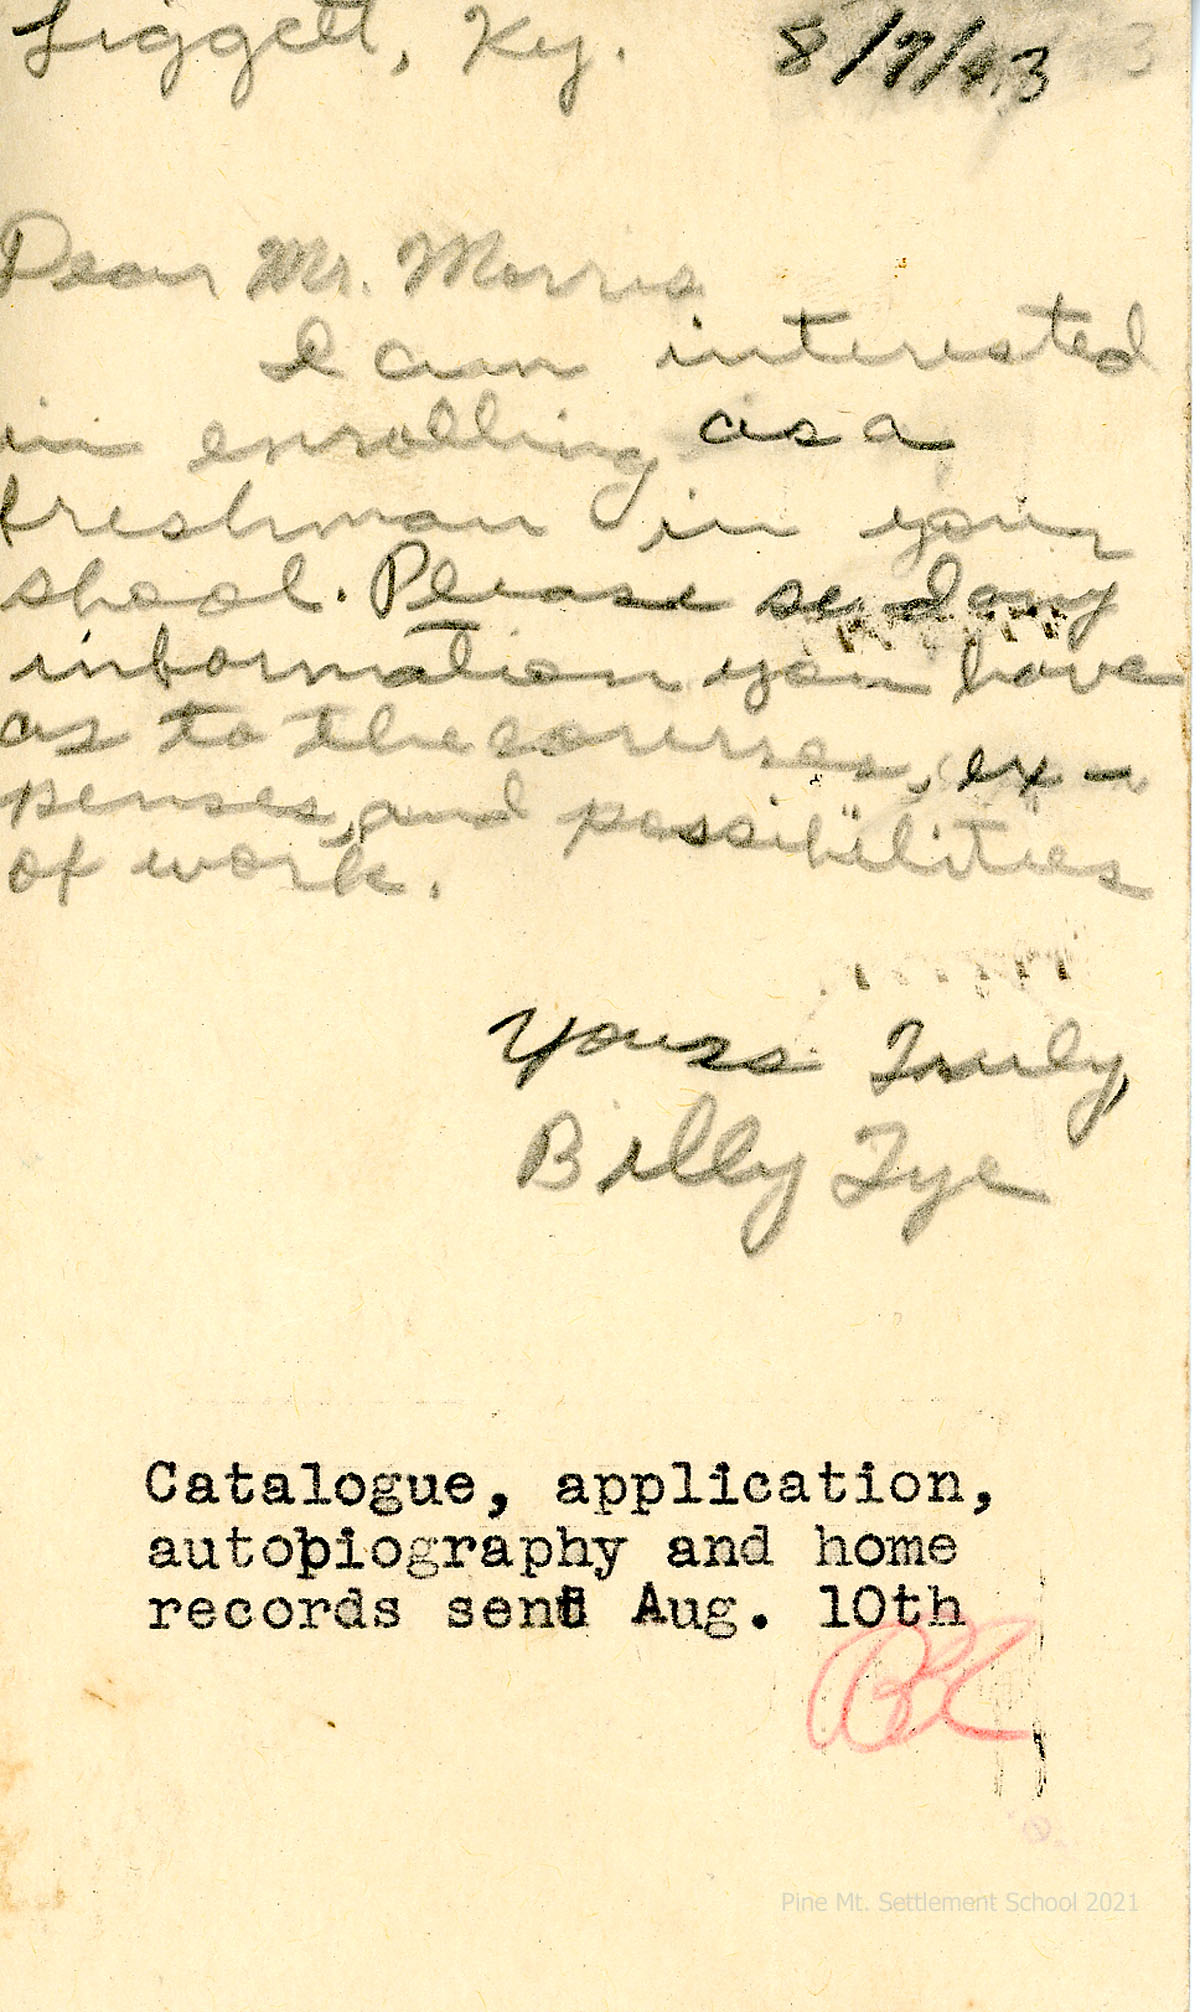 Liggett, Ky. 8/7/43
Dear Mr. Morris
I am interested
in enrolling as a
freshman in your
shool. Please send any
information you have
as to the courses, ex-
penses, and possibilities
of work.
Yours Truly,
Billy Tye
Catalogue, application,
autobiography and home
records sent Aug. 10th
Pine Mt. Settlement School 2021